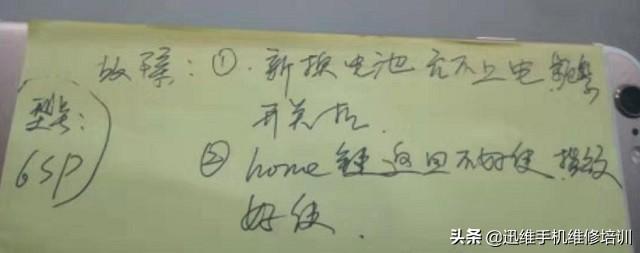 故障：①.新换电池充不上电
开关机.
型号：
6SP
②home键返回不好使 指纹
好使.
头条 @迅维手机维修培训